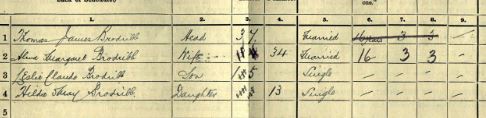 1. 2. 3. 4. 5. 6. 7. 8. 9.
1 Thomas James Brodribb Head 37 Married
2 Margaret Brodribb Wife 34 Married 16 3 3 –
3 Leslie Claude Brodribb Son 15 Single – – – –
4 Hilda May Brodribb Daughter 13 Single – – – –
5